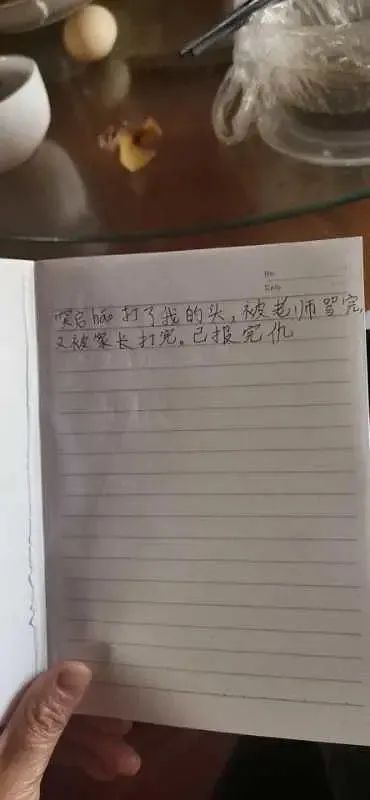 No.
Date
启hao打了我的头,被老师骂完,
又被家长打完。已报完仇